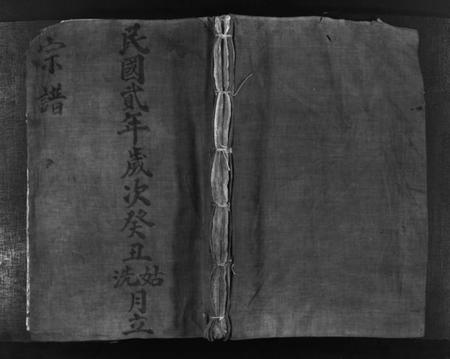 民國貳年歲次癸丑姑洗月立
宗譜